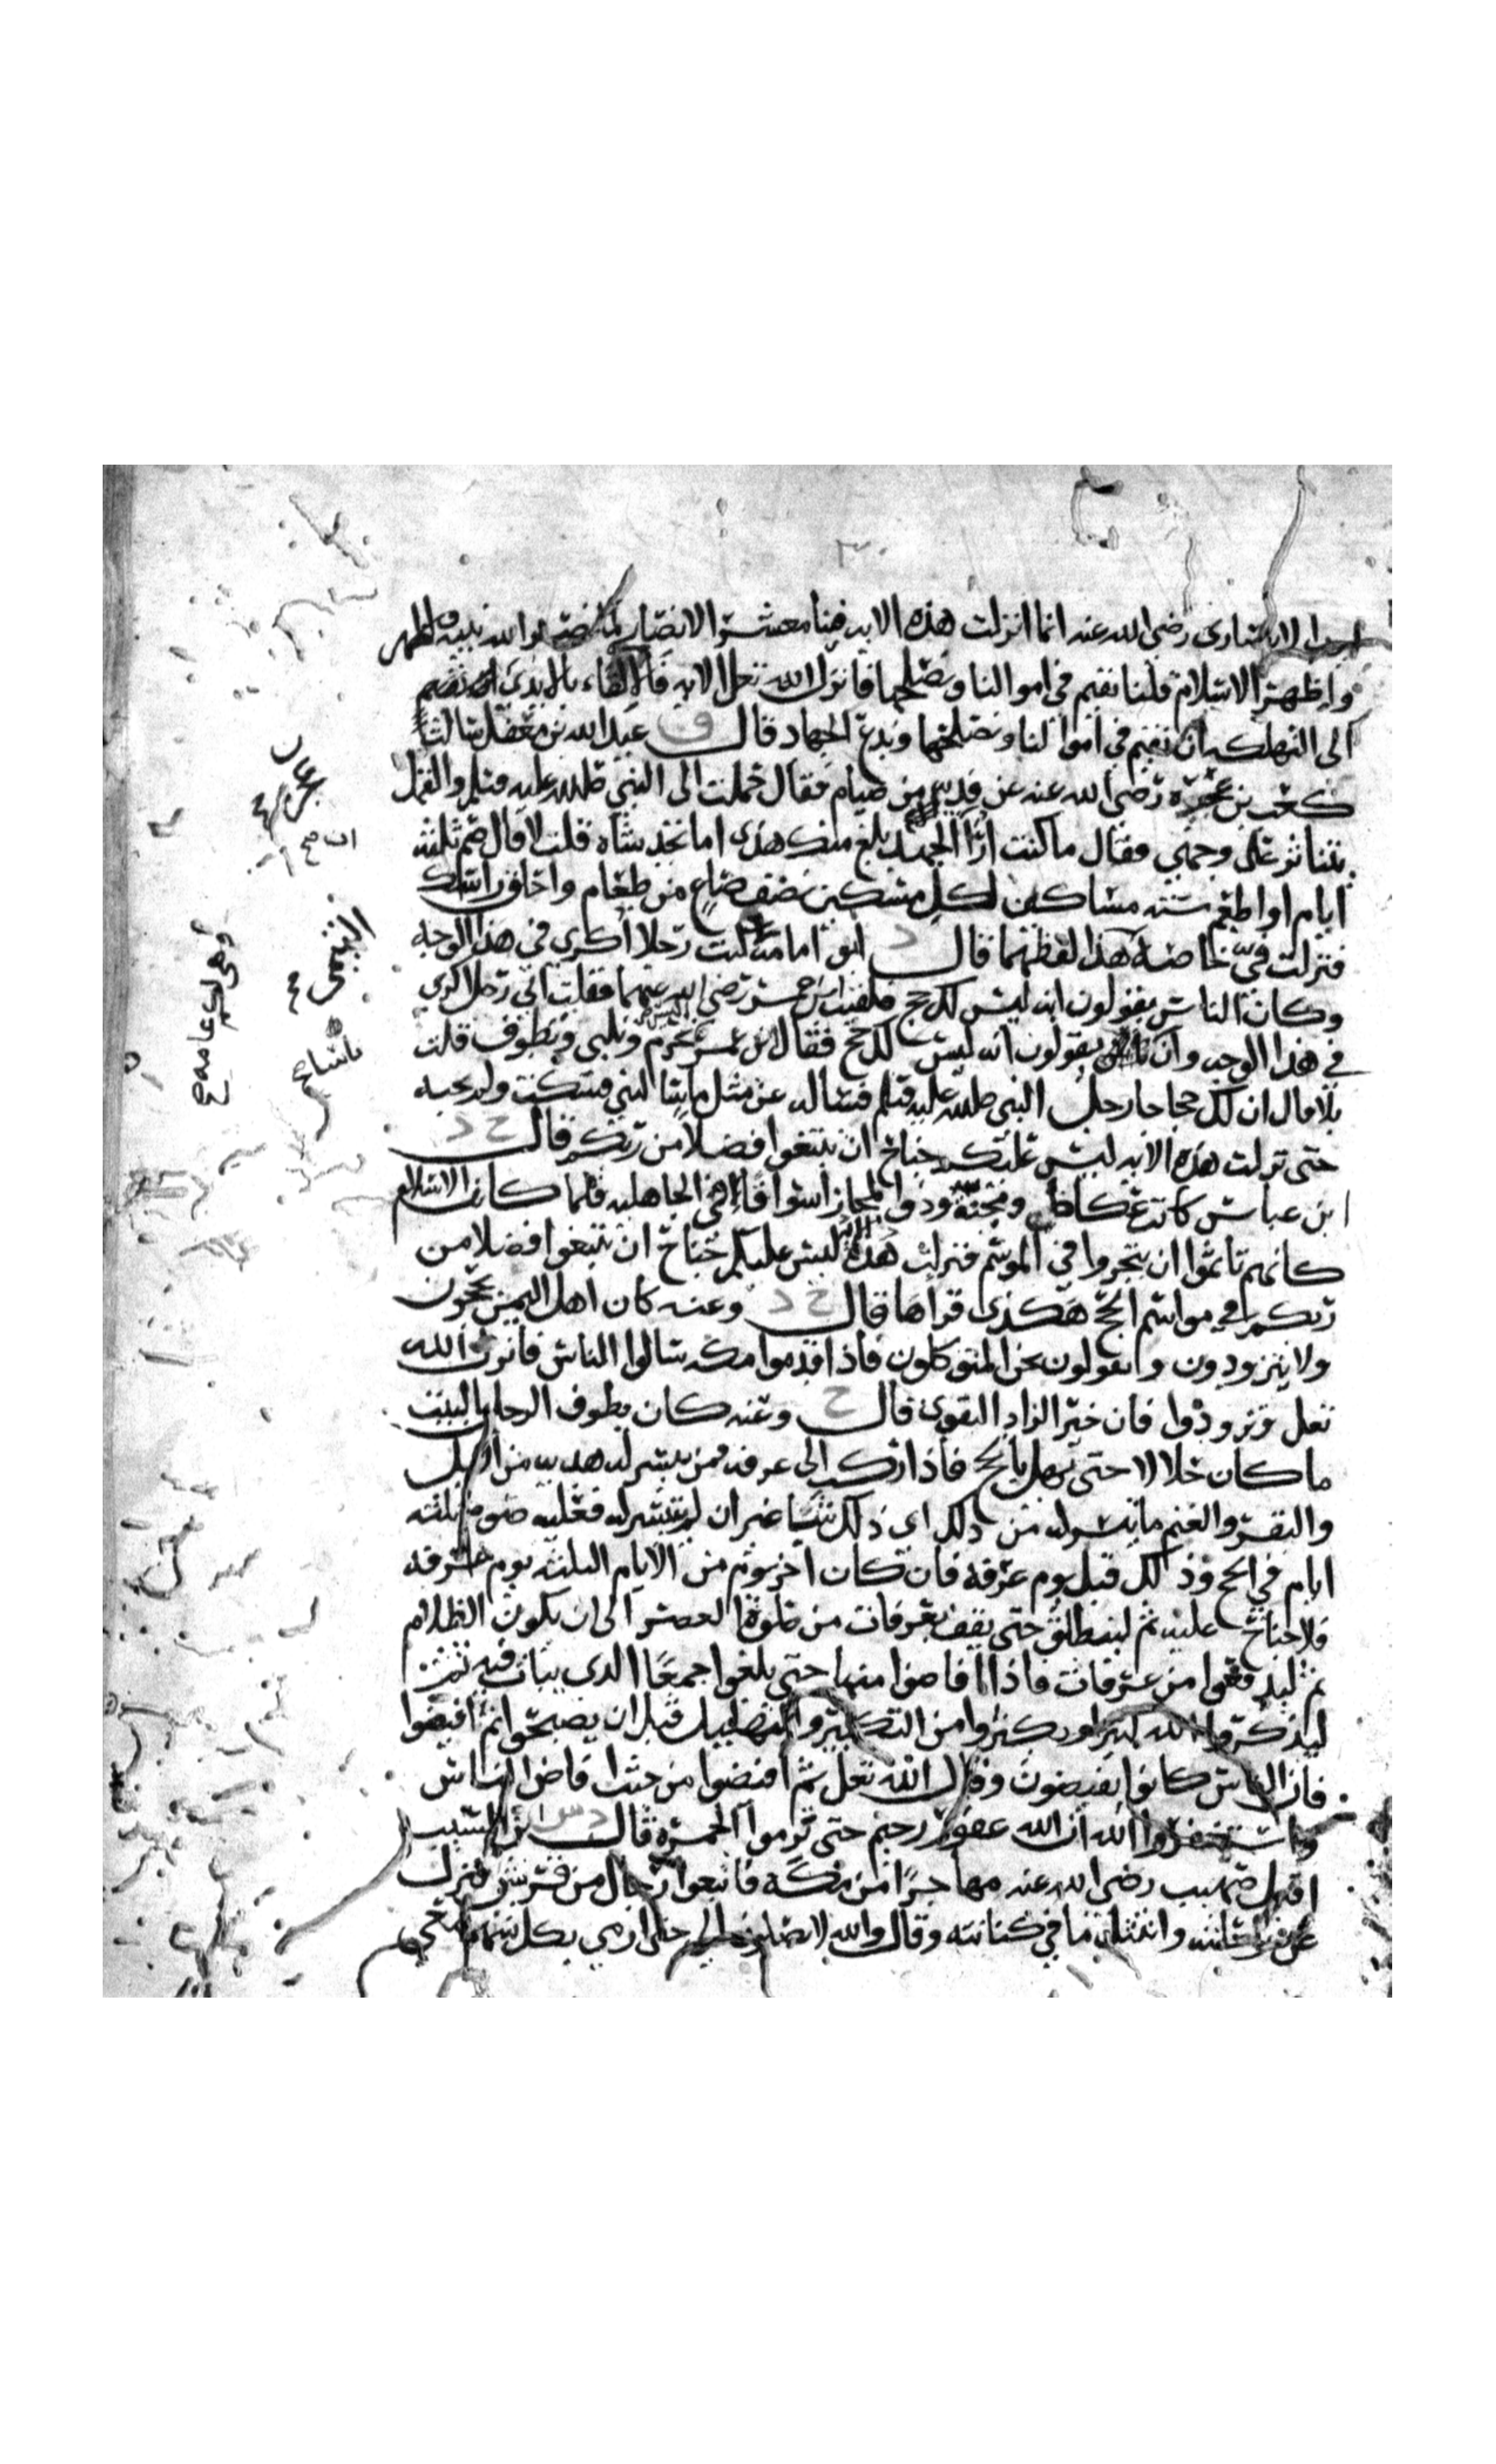 الانصارى رضى الله عنه انما انزلت هذه الايه فينا معشر الانصار لما نصر الله نبيه واظهر
واظهر الاسلام قلنا نقيم فى اموالنا ونصلحها فانزل الله تعلى الايه فالالقاء بالايدى ان نقيم
الى التهلكه ان نقيم فى اموالنا ونصلحها وندع الجهاد قال ق عبد الله بن معقل سالت
كعب بن عجره رضى الله عنه عن فديه من صيام فقال حملت الى النبى صلى الله عليه وسلم والقمل
يتناثر على وجهى فقال ما كنت ارا الجهد بلغ منك هذا اما تجد شاه قلت لا قال صم ثلثه
ايام او اطعم سته مساكين لكل مسكين نصف صاع من طعام واحلق راسك
فنزلت فى خاصه هذا لفظهما قال د ابو امامه كنت رجلا اكرى فى هذا الوجه
وكان الناس يقولون انه ليس لك حج فلقيت ابن عمر رضى الله عنهما فقلت انى رجل اكرى
فى هذا الوجه وان ناسا يقولون انه ليس لك حج فقال ابن عمر اليس تحرم وتلبى وتطوف قلت
بلا قال ان لك حجا جا رجل الى النبى صلى الله عليه وسلم فساله عن مثل ما سالتنى فسكت ولم يجبه
حتى نزلت هذه الايه ليس عليكم جناح ان تبتغوا فضلا من ربكم قال خ د
ابن عباس كانت عكاظ ومجنة وذو المجاز اسواقا فى الجاهليه فلما كان الاسلام
كانهم تاثموا ان يتجروا فى الموسم فنزلت هذه الايه ليس عليكم جناح ان تبتغوا فضلا من
ربكم فى مواسم الحج هكذى قراها قال خ د وعنه كان اهل اليمن يحجون
ولا يتزودون ويقولون نحن المتوكلون فاذا قدموا مكه سالوا الناس فانزل الله
تعلى وتزودوا فان خير الزاد التقوى قال خ وعنه كان يطوف الرجل بالبيت
ما كان حلالا حتى يهل بالحج فاذا ركب الى عرفه فمن تيسر له هديه من الابل
والبقر والغنم ما تيسر له من ذلك اى ذلك شا غير ان لم يتيسر له فعليه صوم ثلثه
ايام فى الحج وذلك قبل يوم عرفه فان كان اخر يوم من الايام الثلثه يوم عرفه
فلا جناح عليه ثم لينطلق حتى يقف بعرفات من صلوة العصر الى ان يكون الظلام
ثم ليدفعوا من عرفات فاذا افاضوا منها حتى يبلغوا جمعا الذى يبات فيه ثم
ليذكروا الله كثيرا وكثروا من التكبير والتهليل قبل ان يصبحوا ثم افيضوا
فان الناس كانوا يفيضون وقال الله تعلى ثم افيضوا من حيث افاض الناس
واستغفروا الله ان الله غفور رحيم حتى ترموا الجمره قال ابن المسيب
اقبل صهيب رضى الله عنه مهاجرا من مكه فاتبعوا رجال من قريش فنزل
عن راحلته وانتثل ما فى كنانته وقال والله لا تصلون الى حتى ارمى بكل سهم معى
التيمى